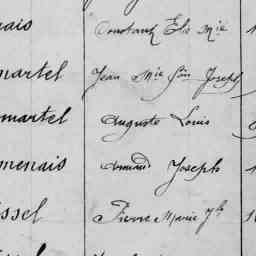 nais Constant Elie Mie
martel Jean Mie Fçois Joseph
martel Auguste Louis
menais Armand Joseph
ssel Pierre Marie Jh